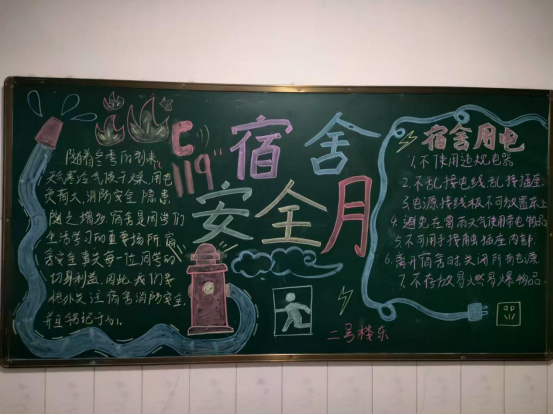 宿舍
安全月
119
随着冬季的到来,
天气寒冷气候干燥,用电
负荷大,消防安全隐患
随之增加,宿舍是同学们
生活学习的重要场所,宿
舍安全事关每一位同学的
切身利益,因此,我们要
格外关注宿舍消防安全,
并且铭记于心。
宿舍用电
1.不使用违规电器
2.不乱接电线,乱接插座.
3.电源接线板不可放置床上
4.避免在雷雨天气使用带电物品
5.不可用手接触插座内部.
6.离开宿舍时关闭所有电源
7.不存放易燃易爆物品.
二号楼东